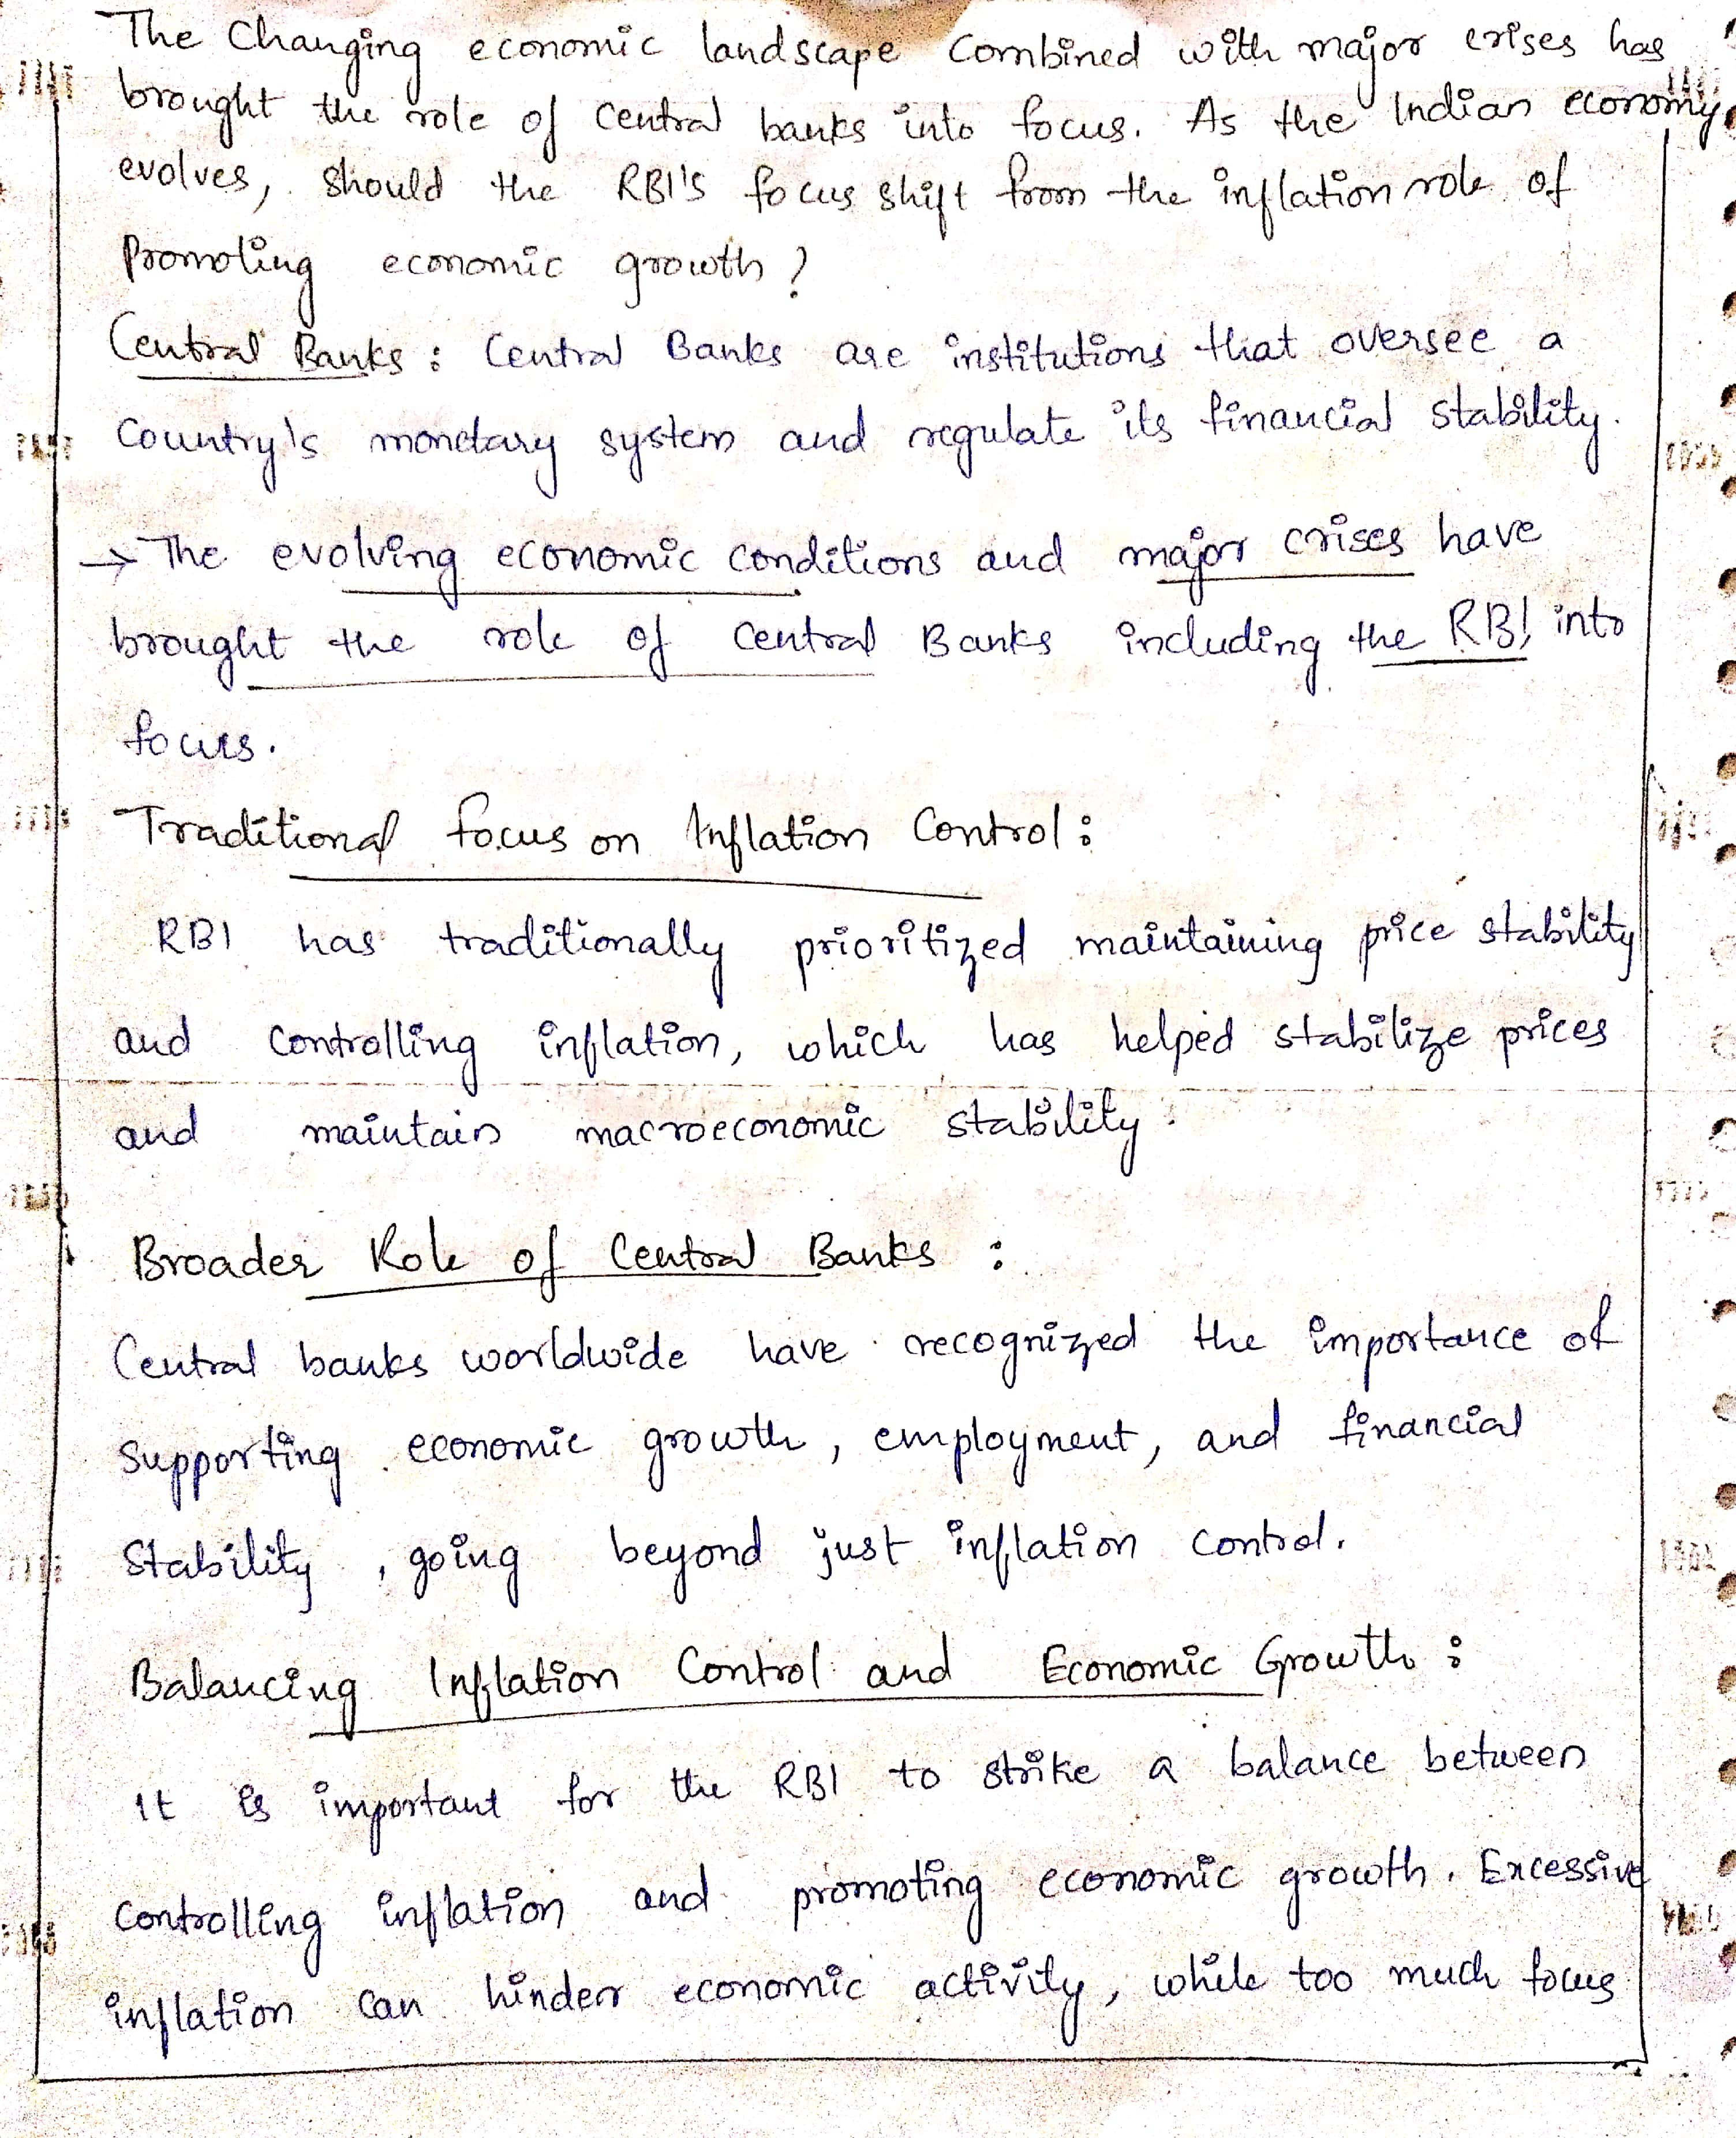 The Changing economic landscape combined with major crises has
brought the role of central banks into focus. As the Indian economy
evolves, should the RBI's focus shift from the inflation role of
promoting economic growth?
Central Banks: Central Banks are institutions that oversee a
Country's monetary system and regulate its financial stability.
→ The evolving economic conditions and major crises have
brought the role of Central Banks including the RBI into
focus.
Traditional focus on Inflation Control:
RBI has traditionally prioritized maintaining price stability
and controlling inflation, which has helped stabilize prices
and maintain macroeconomic stability.
Broader Role of Central Banks :
Central banks worldwide have recognized the importance of
supporting economic growth, employment, and financial
stability, going beyond just inflation control.
Balancing Inflation Control and Economic Growth:
It is important for the RBI to strike a balance between
controlling inflation and promoting economic growth. Excessive
inflation can hinder economic activity, while too much focus